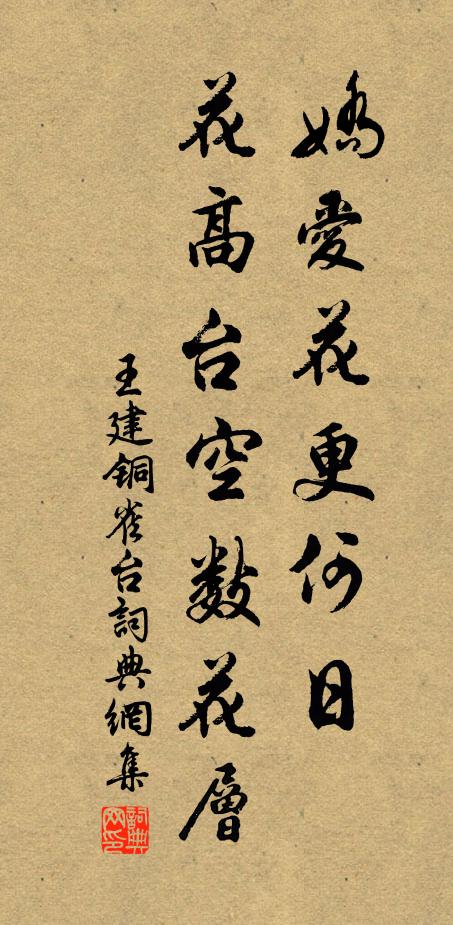 嬌愛花更何日
花高台空數花層
王建铜雀台詞典網集
詞典網印